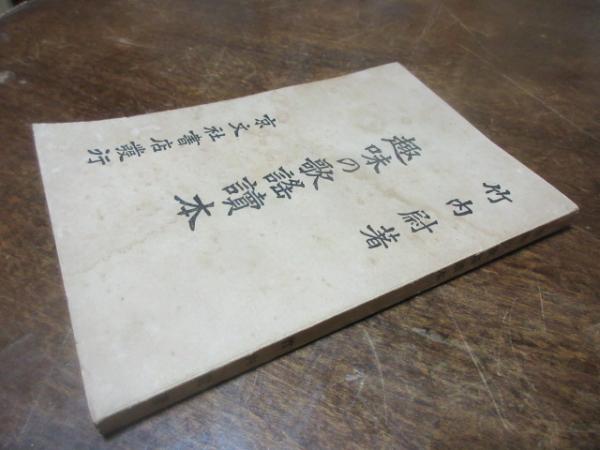 竹内尉著
趣味の歌謡讀本
京文社書店發行